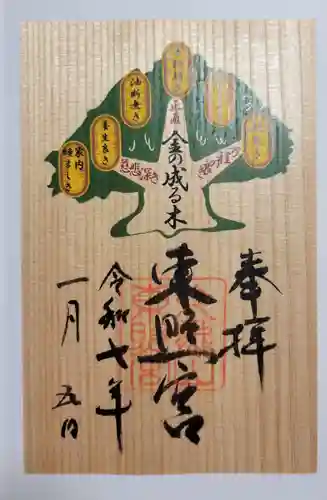 奉拝
東照宮
令和七年
一月 五日
金の成る木
正直
慈悲深き
油断無き
養生良き
家内睦ましき